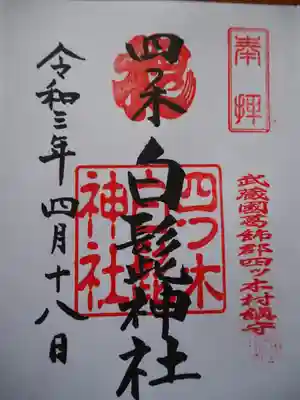 奉拝
武蔵國葛飾郡四ッ木村鎮守
四木白髭神社
四つ木
白髭
神社
令和三年四月十八日